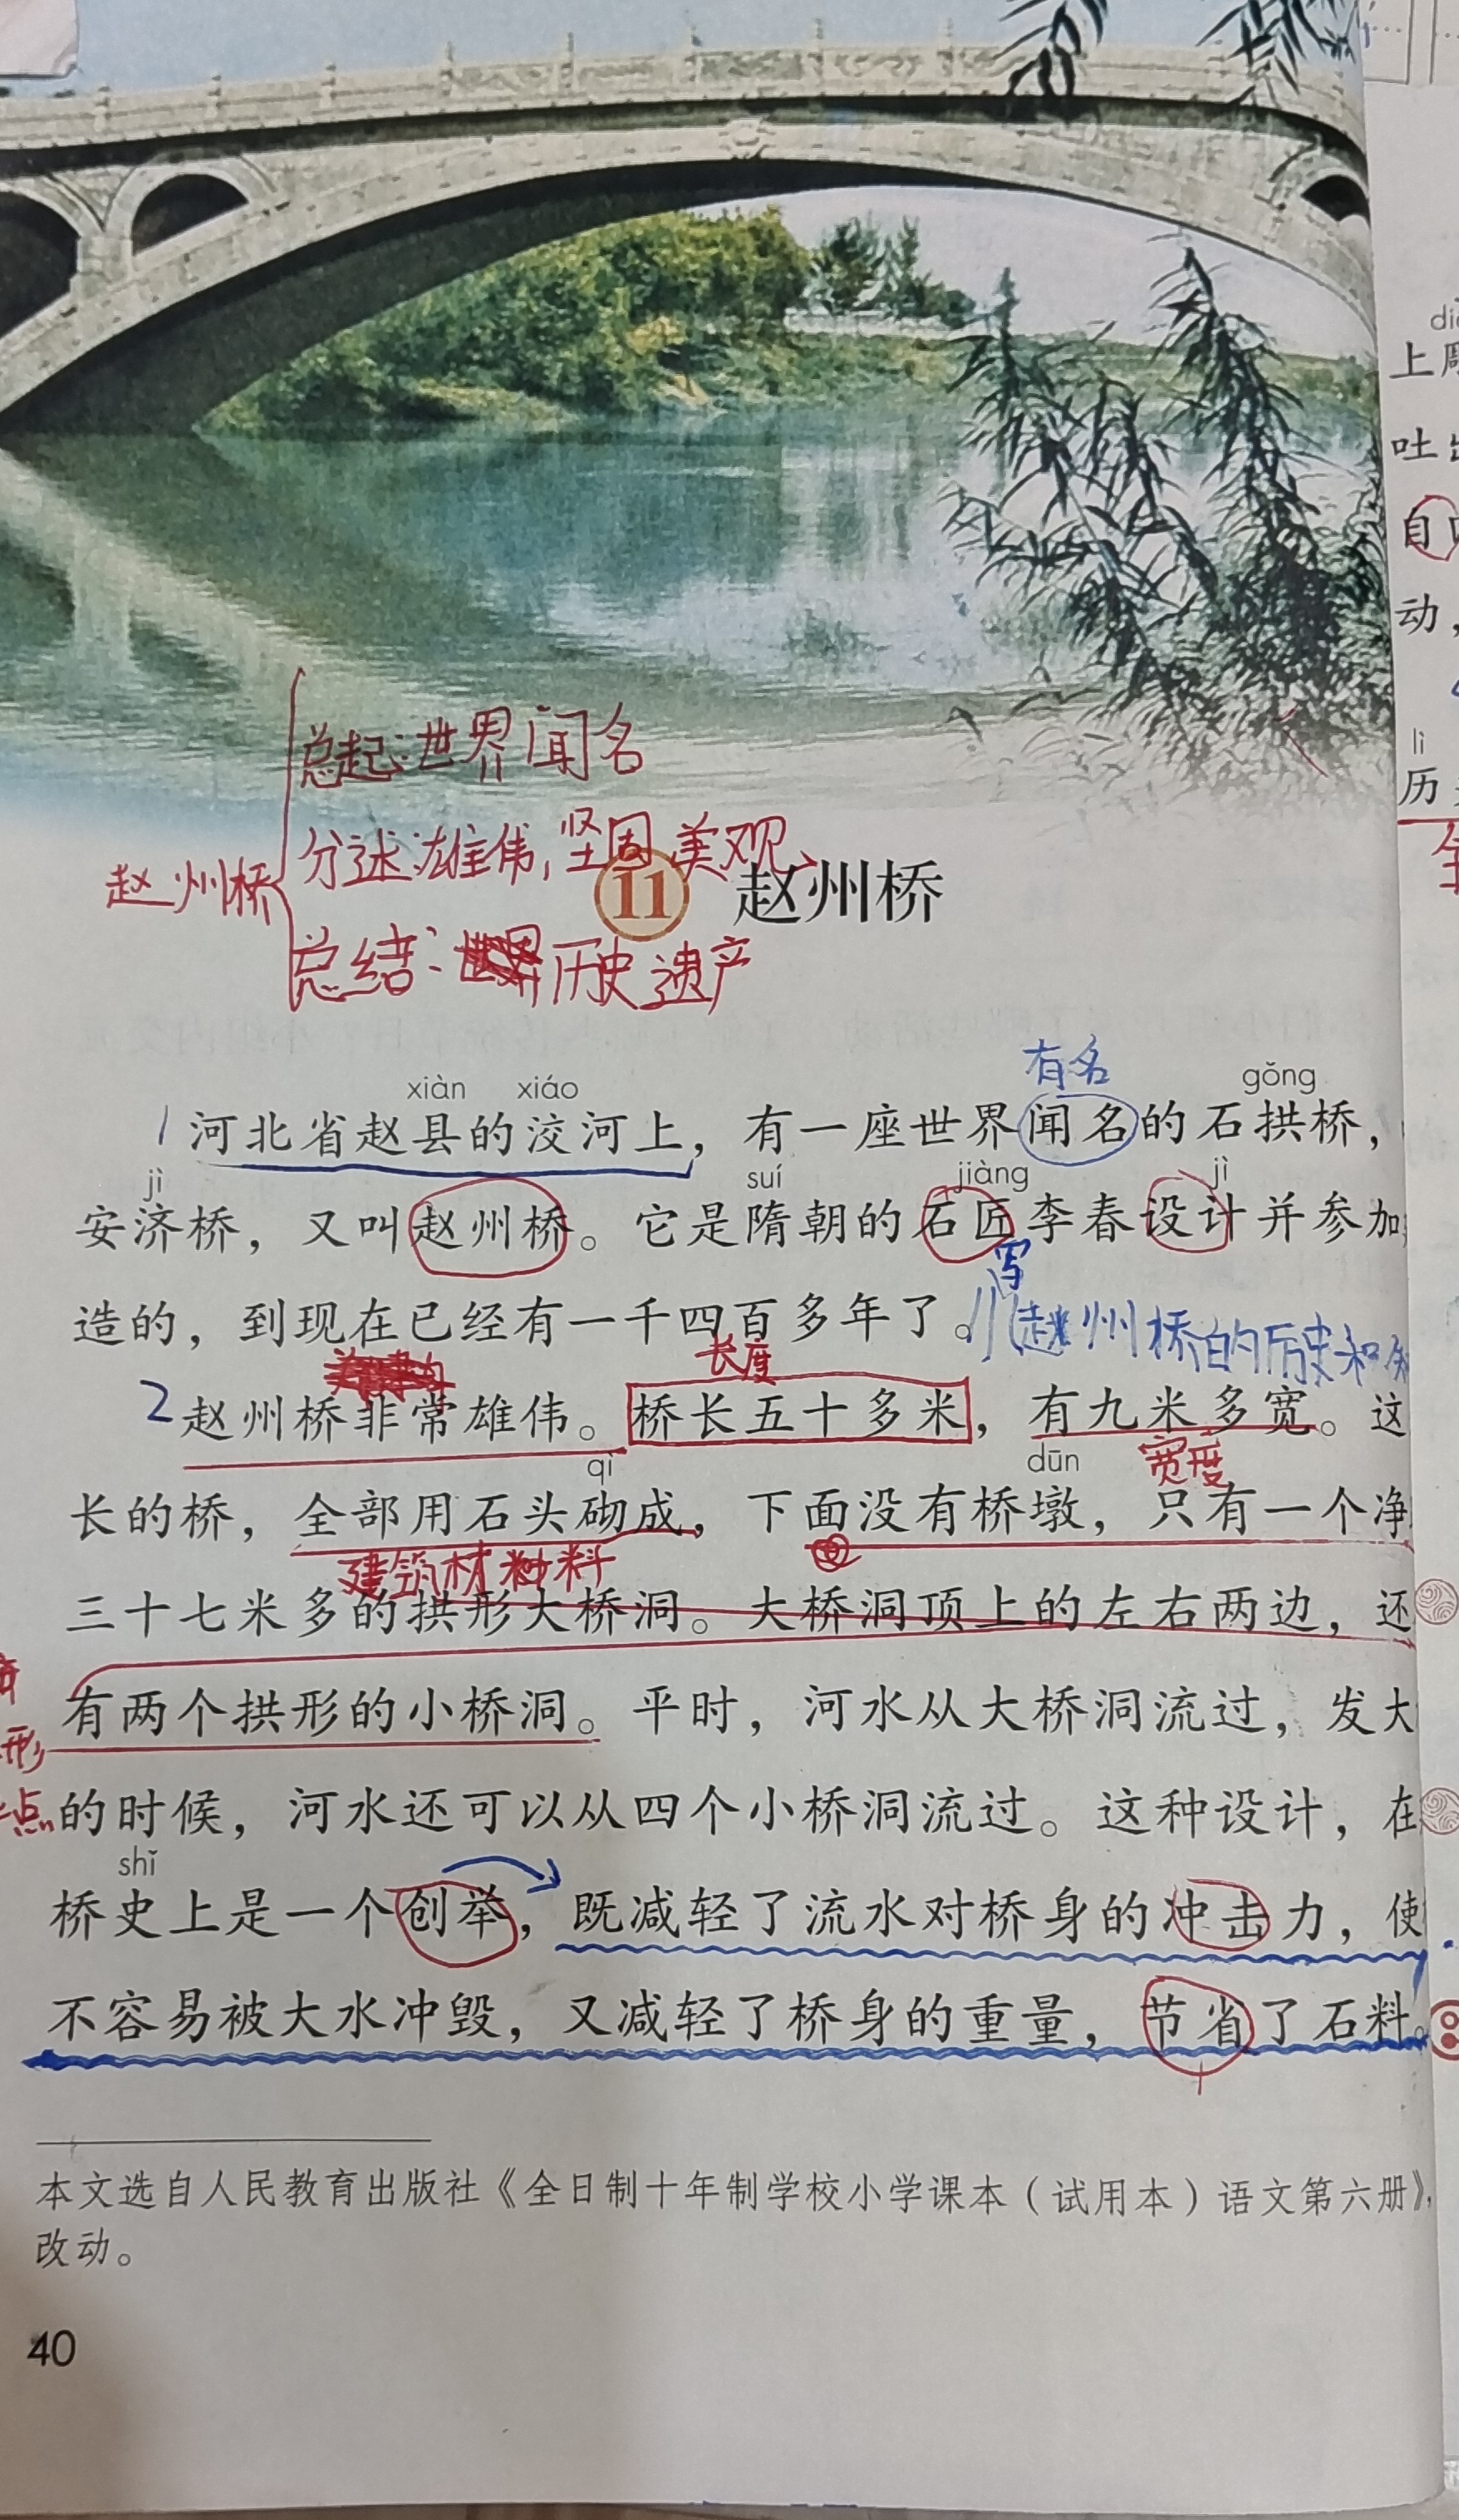 总起：世界闻名
分述：雄伟，坚固，美观
赵州桥
总结：历史遗产
11 赵州桥
有名
xiàn xiáo gǒng
1 河北省赵县的洨河上，有一座世界闻名的石拱桥，
jì suí jiàng jì
安济桥，又叫赵州桥。它是隋朝的石匠李春设计并参加
写
造的，到现在已经有一千四百多年了。赵州桥的历史和
长度
2 赵州桥非常雄伟。桥长五十多米，有九米多宽。这
qì dūn 宽度
长的桥，全部用石头砌成，下面没有桥墩，只有一个净
建筑材料
三十七米多的拱形大桥洞。大桥洞顶上的左右两边，还
有两个拱形的小桥洞。平时，河水从大桥洞流过，发大
形
点
的时候，河水还可以从四个小桥洞流过。这种设计，在
shǐ
桥史上是一个创举，既减轻了流水对桥身的冲击力，使
不容易被大水冲毁，又减轻了桥身的重量，节省了石料。
本文选自人民教育出版社《全日制十年制学校小学课本（试用本）语文第六册》，
改动。
40
上
吐
自
动，
lì
历